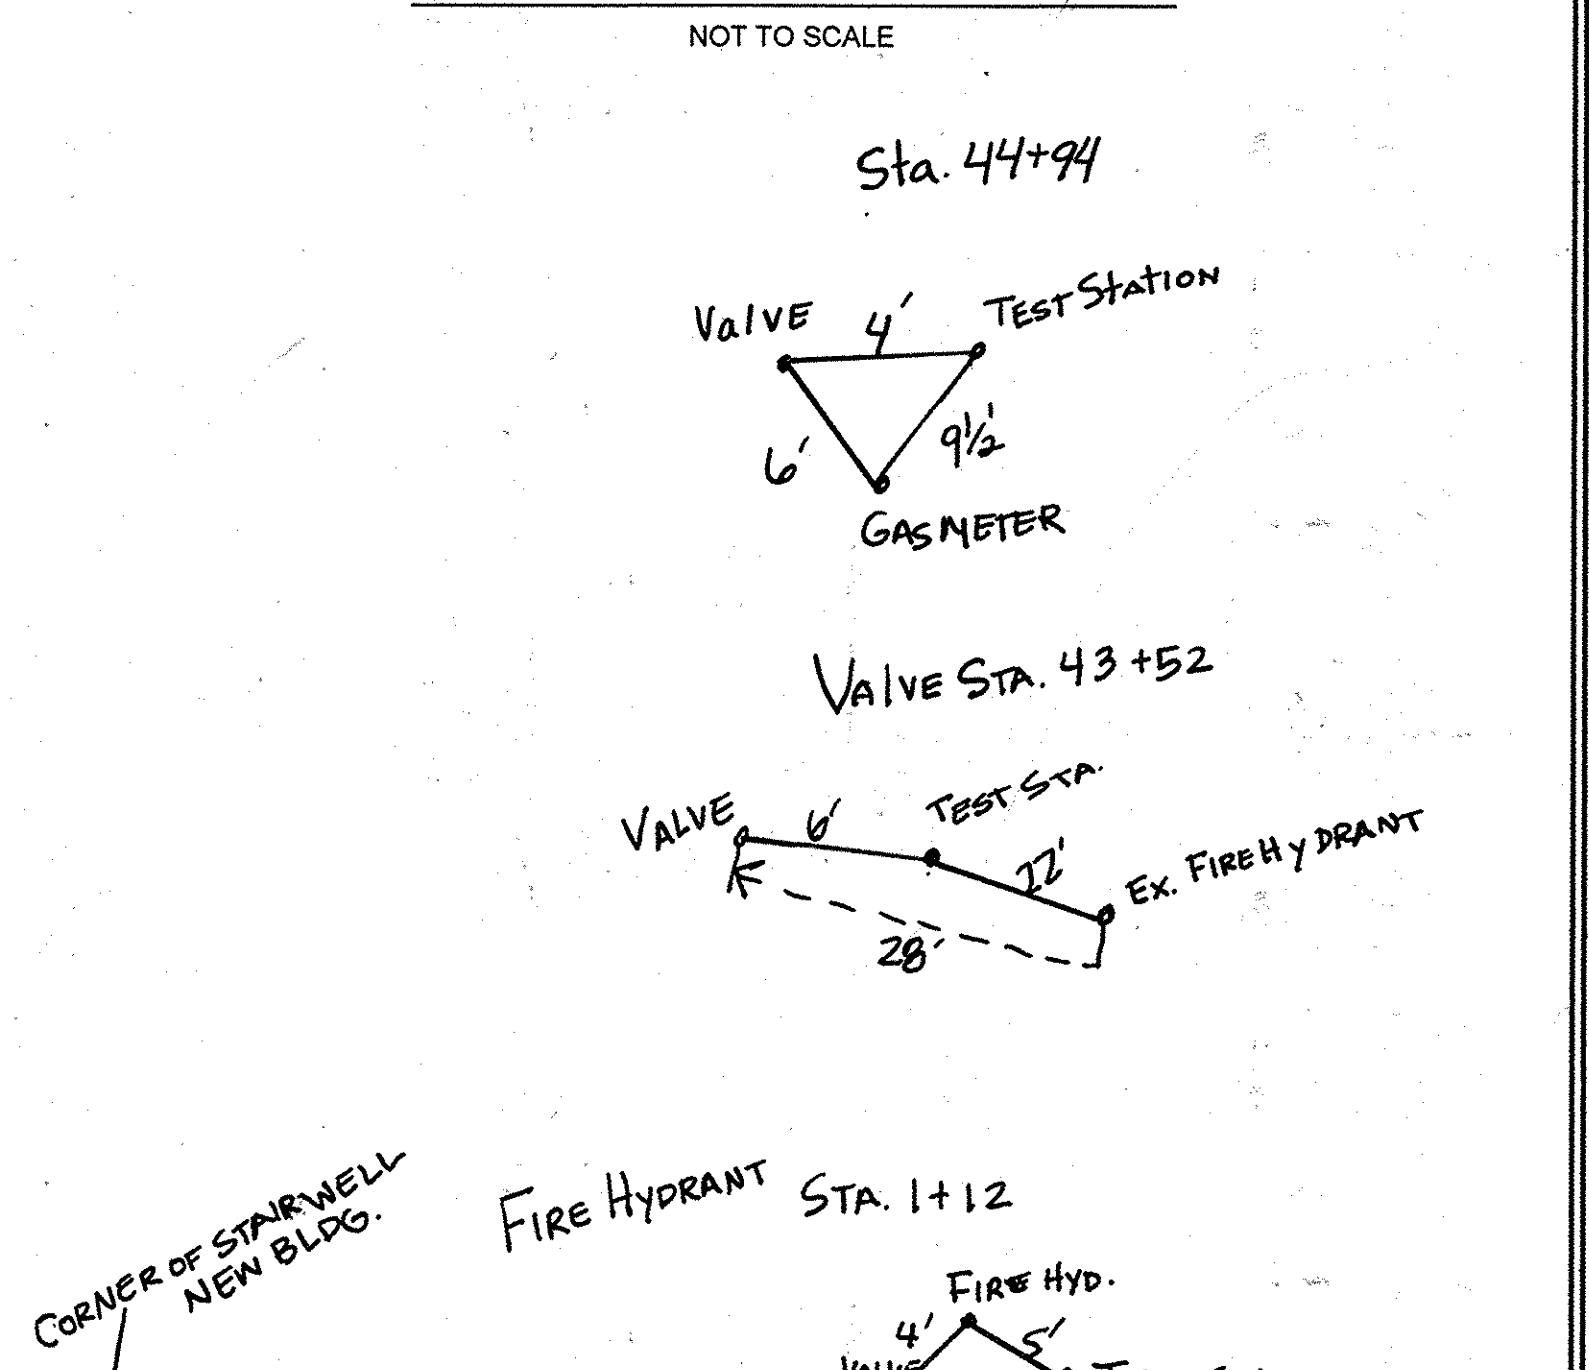 NOT TO SCALE
Sta. 44+94
Valve 4' Test Station
6' 9½'
GAS METER
VALVE STA. 43+52
VALVE 6' TEST STA.
22' Ex. FIRE HYDRANT
28'
CORNER OF STAIRWELL
NEW BLDG.
FIRE HYDRANT STA. 1+12
FIRE HYD.
4' 5'
VALVE